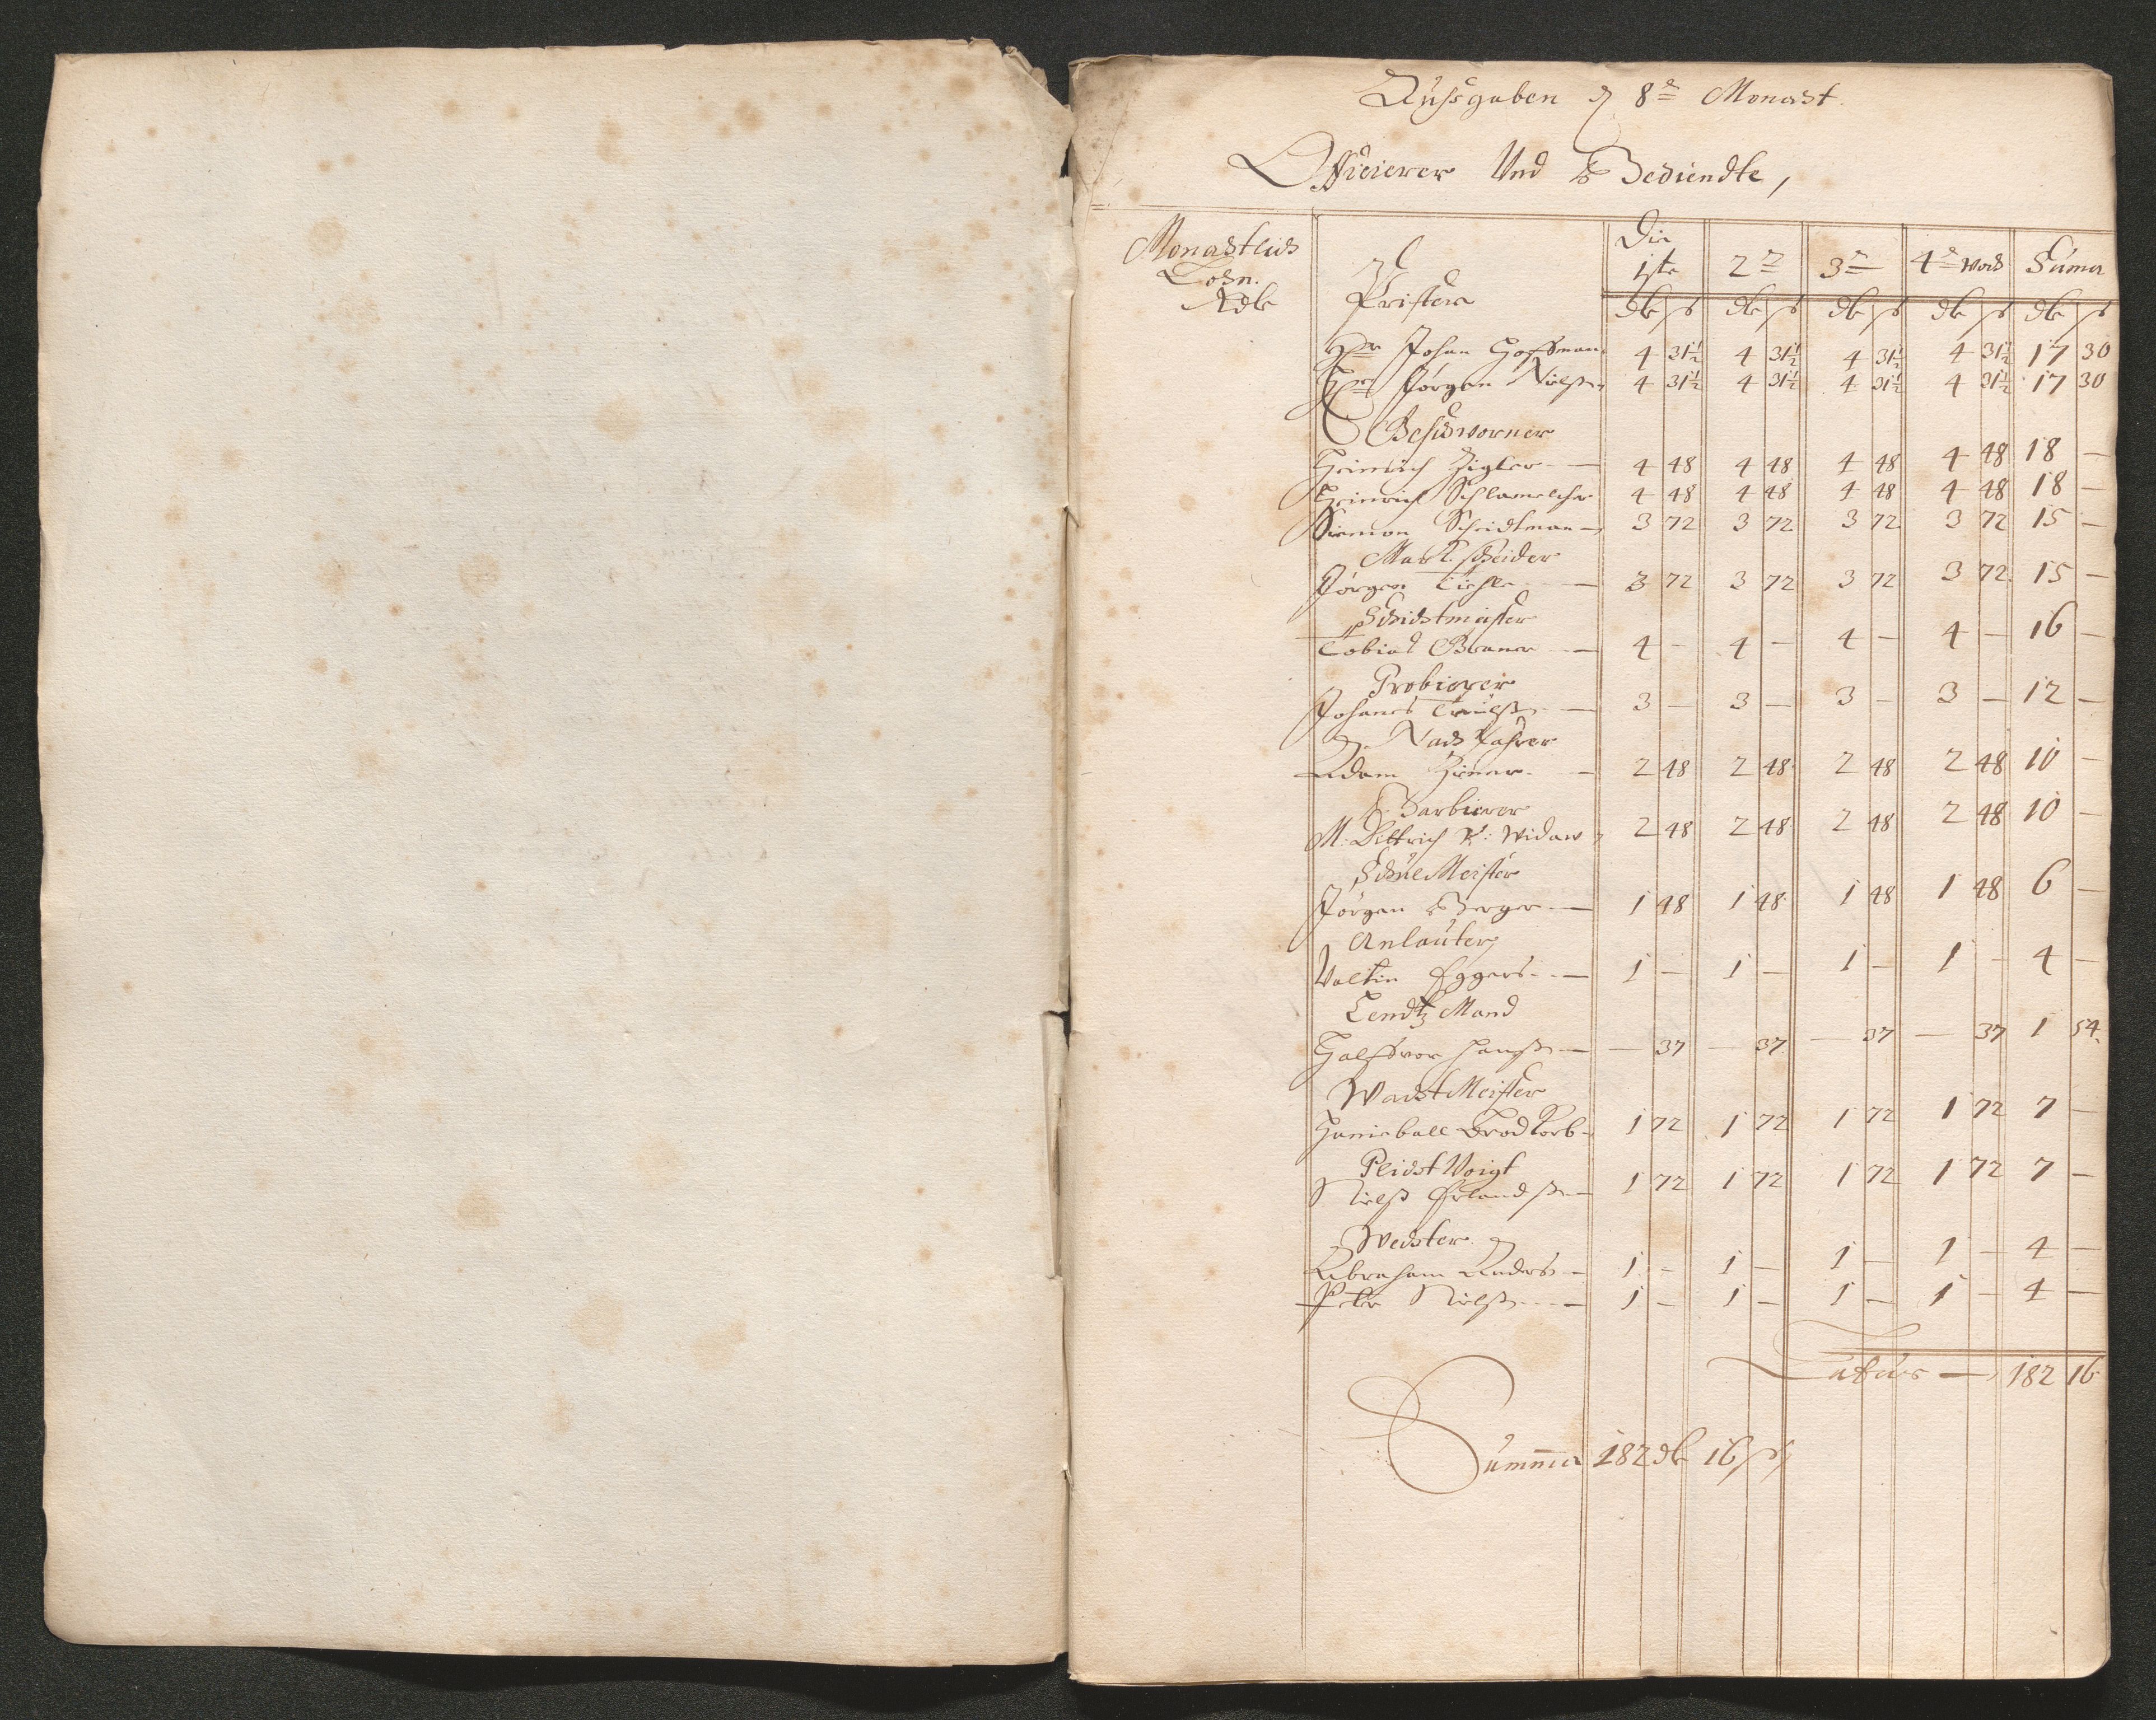 Außgaben d 8te Monast.
Officierer Und Bediendte,
Monastlich Lohn. Rdlr
Prister
Die 1ste 2te 3te 4te woch Suma
dlr ß dlr ß dlr ß dlr ß dlr ß
Hr Johan Hoffman 4 31½ 4 31½ 4 31½ 4 31½ 17 30
Hr Jörgen Nielß 4 31½ 4 31½ 4 31½ 4 31½ 17 30
Geschworner
Heinrich Zigler 4 48 4 48 4 48 4 48 18 —
Heinrich Schlamelcher 4 48 4 48 4 48 4 48 18 —
Siemon Scheidtman 3 72 3 72 3 72 3 72 15 —
Marckscheider
Jörgen 3 72 3 72 3 72 3 72 15 —
Schichtmeister
Tobias Braner 4 — 4 — 4 — 4 — 16 —
Probierer
Johanes 3 — 3 — 3 — 3 — 12 —
Nachfahrer
Adam 2 48 2 48 2 48 2 48 10 —
Barbierer
M: Dittrich V: Widaw 2 48 2 48 2 48 2 48 10 —
Schulmeister
Jörgen Berger 1 48 1 48 1 48 1 48 6 —
Anlauter
Valtin Eggers 1 — 1 — 1 — 1 — 4 —
Lendtz Mand
Halffvor Hanß — 37 — 37 — 37 — 37 1 54
Wacht Meister
Haniball Brodkorb 1 72 1 72 1 72 1 72 7 —
Plicht Voigt
Nielß Erlandß 1 72 1 72 1 72 1 72 7 —
Wechter
Abraham Anders 1 — 1 — 1 — 1 — 4 —
Peter Nielß 1 — 1 — 1 — 1 — 4 —
Latus — 182 16
Summa 182 dlr 16 ß